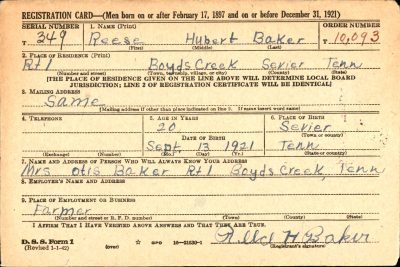 REGISTRATION CARD—(Men born on or after February 17, 1897 and on or before December 31, 1921)
SERIAL NUMBER 1. NAME (Print) ORDER NUMBER
T 349 Reese Hubert Baker T 10,093
(First) (Middle) (Last)
2. PLACE OF RESIDENCE (Print)
Rt 1 Boyds Creek Sevier Tenn
(Number and street) (Town, township, village, or city) (County) (State)
[THE PLACE OF RESIDENCE GIVEN ON THE LINE ABOVE WILL DETERMINE LOCAL BOARD
JURISDICTION; LINE 2 OF REGISTRATION CERTIFICATE WILL BE IDENTICAL]
3. MAILING ADDRESS
Same
[Mailing address if other than place indicated on line 2. If same insert word same]
4. TELEPHONE 5. AGE IN YEARS 6. PLACE OF BIRTH
20 Sevier
DATE OF BIRTH (Town or county)
Sept 13 1921 Tenn
(Exchange) (Number) (Mo.) (Day) (Yr.) (State or country)
7. NAME AND ADDRESS OF PERSON WHO WILL ALWAYS KNOW YOUR ADDRESS
Mrs Otis Baker Rt 1 Boyds Creek, Tenn
8. EMPLOYER'S NAME AND ADDRESS
9. PLACE OF EMPLOYMENT OR BUSINESS
Farmer
(Number and street or R. F. D. number) (Town) (County) (State)
I AFFIRM THAT I HAVE VERIFIED ABOVE ANSWERS AND THAT THEY ARE TRUE.
D. S. S. Form 1 H Baker
(Revised 1-1-42) (over) ☆ GPO 16-21630-1 (Registrant's signature)